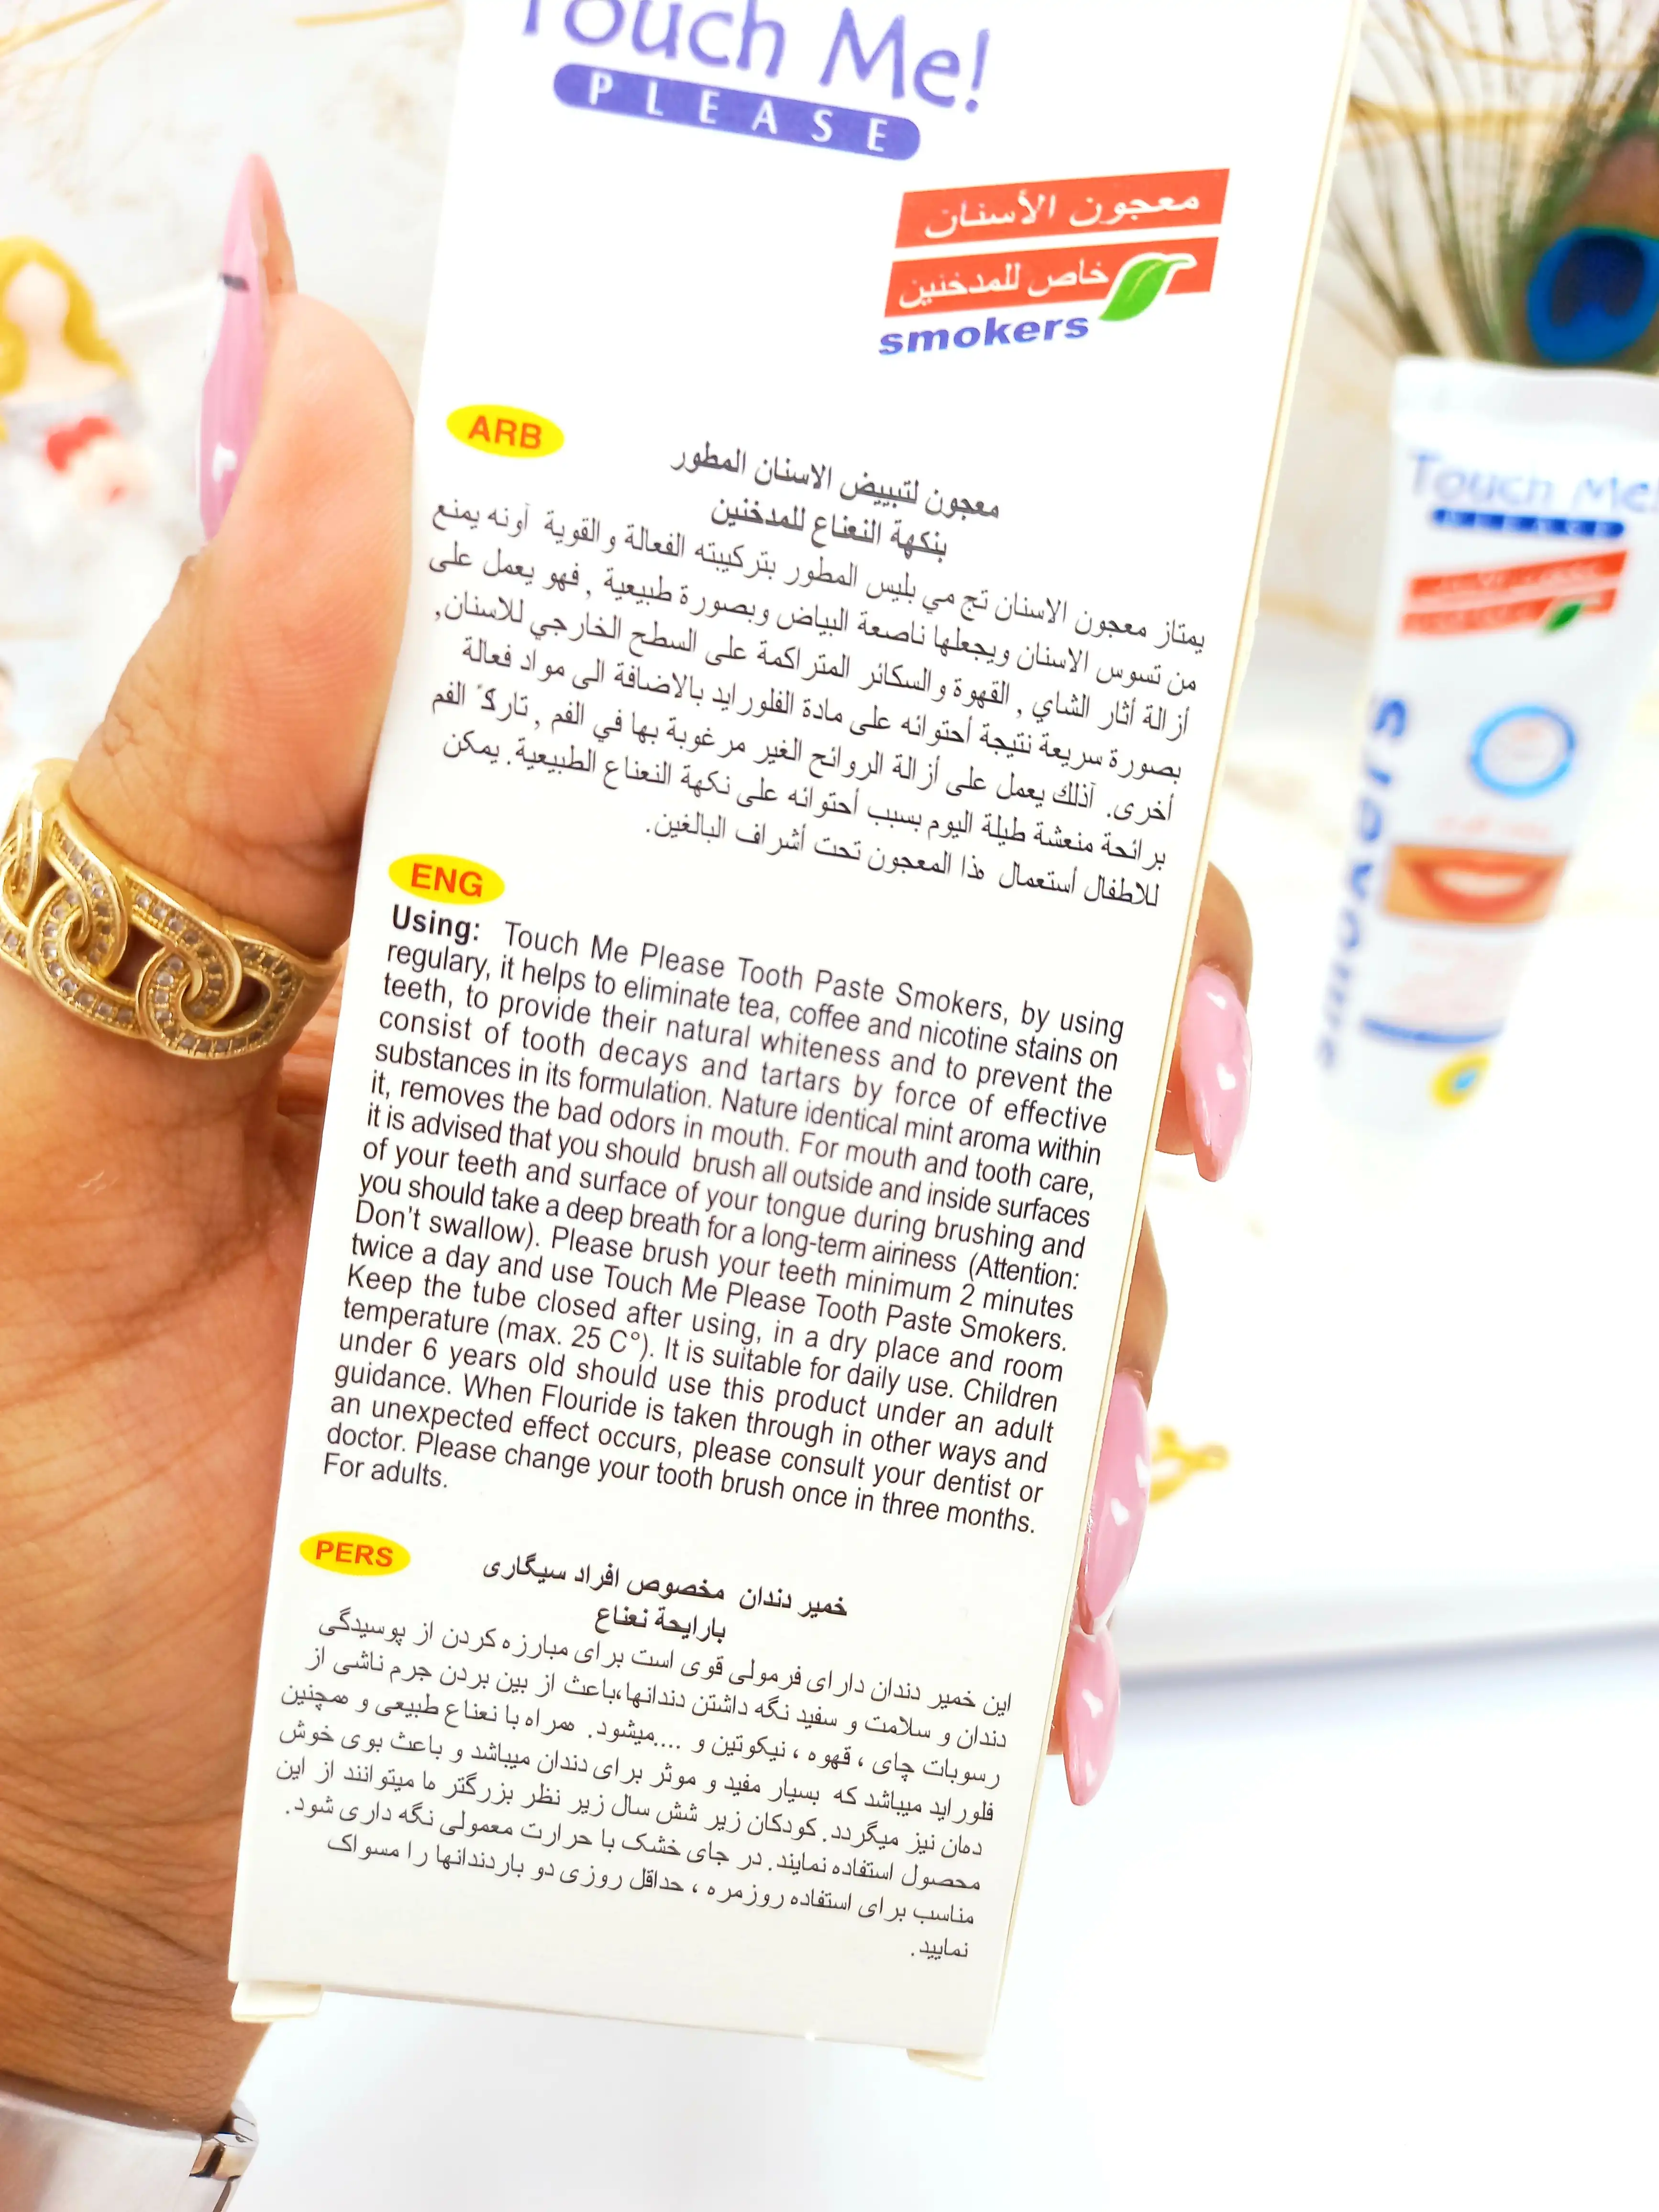 Touch Me!
PLEASE
معجون الأسنان
خاص للمدخنين
smokers
ARB
معجون لتبييض الاسنان المطور
بنكهة النعناع للمدخنين
يمتاز معجون الاسنان تج مي بليس المطور بتركيبته الفعالة والقوية أونه يمنع
من تسوس الاسنان ويجعلها ناصعة البياض وبصورة طبيعية , فهو يعمل على
أزالة أثار الشاي , القهوة والسكائر المتراكمة على السطح الخارجي للاسنان,
بصورة سريعة نتيجة أحتوائه على مادة الفلورايد بالاضافة الى مواد فعالة
أخرى. آذلك يعمل على أزالة الروائح الغير مرغوبة بها في الفم , تاركً الفم
برائحة منعشة طيلة اليوم بسبب أحتوائه على نكهة النعناع الطبيعية. يمكن
للاطفال أستعمال هذا المعجون تحت أشراف البالغين.
ENG
Using: Touch Me Please Tooth Paste Smokers, by using
regulary, it helps to eliminate tea, coffee and nicotine stains on
teeth, to provide their natural whiteness and to prevent the
consist of tooth decays and tartars by force of effective
substances in its formulation. Nature identical mint aroma within
it, removes the bad odors in mouth. For mouth and tooth care,
it is advised that you should brush all outside and inside surfaces
of your teeth and surface of your tongue during brushing and
you should take a deep breath for a long-term airiness (Attention:
Don't swallow). Please brush your teeth minimum 2 minutes
twice a day and use Touch Me Please Tooth Paste Smokers.
Keep the tube closed after using, in a dry place and room
temperature (max. 25 C°). It is suitable for daily use. Children
under 6 years old should use this product under an adult
guidance. When Flouride is taken through in other ways and
an unexpected effect occurs, please consult your dentist or
doctor. Please change your tooth brush once in three months.
For adults.
PERS
خمیر دندان مخصوص افراد سیگاری
بارایحة نعناع
این خمیر دندان دارای فرمولی قوی است برای مبارزه کردن از پوسیدگی
دندان و سلامت و سفید نگه داشتن دندانها،باعث از بین بردن جرم ناشی از
رسوبات چای ، قهوه ، نیکوتین و ....میشود. همراه با نعناع طبیعی و همچنین
فلوراید میباشد که بسیار مفید و موثر برای دندان میباشد و باعث بوی خوش
دهان نیز میگردد. کودکان زیر شش سال زیر نظر بزرگتر ها میتوانند از این
محصول استفاده نمایند. در جای خشک با حرارت معمولی نگه داری شود.
مناسب برای استفاده روزمره ، حداقل روزی دو باردندانها را مسواک
نمایید.
Touch Me!
PLEASE
smokers